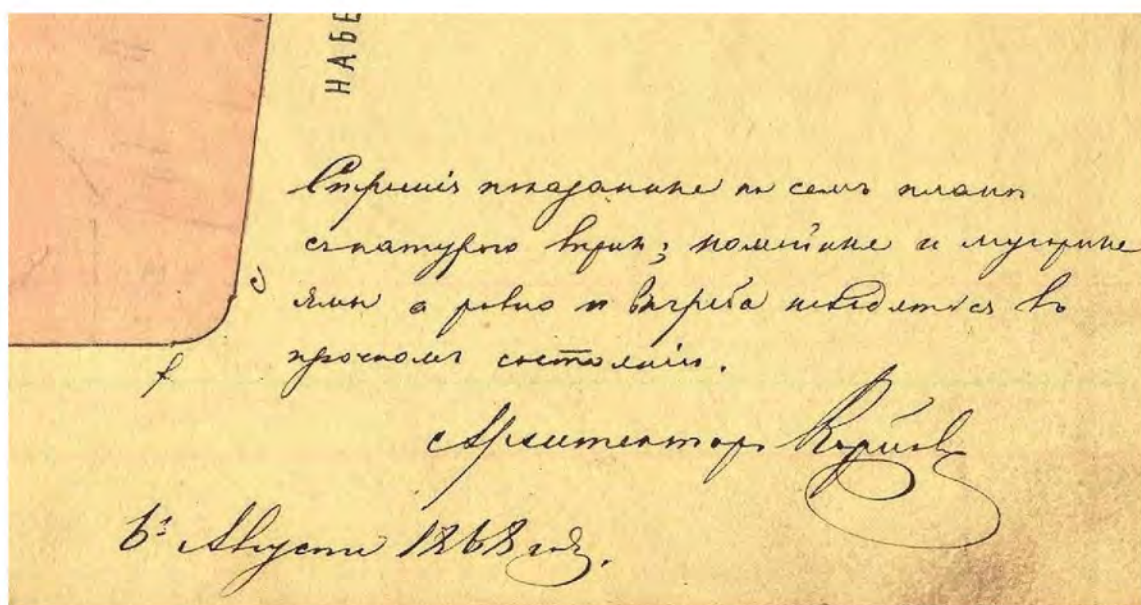 НАБЕ
с
f
Строенiя показанные на семъ планѣ
съ натурою вѣрны; помойные и мусорные
ямы а равно и выгреба находятся въ
прочномъ состоянiи.
Архитекторъ
6го Августа 1868 года.